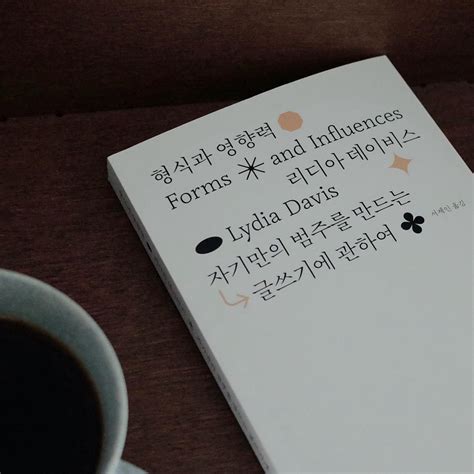 형식과 영향력
Forms and Influences
리디아 데이비스
Lydia Davis
자기만의 범주를 만드는
글쓰기에 관하여
서제인 옮김